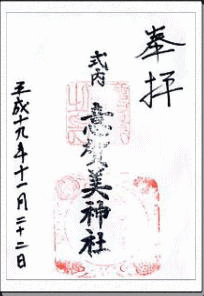 奉拝
式内
意賀美神社
平成十九年十一月二十二日